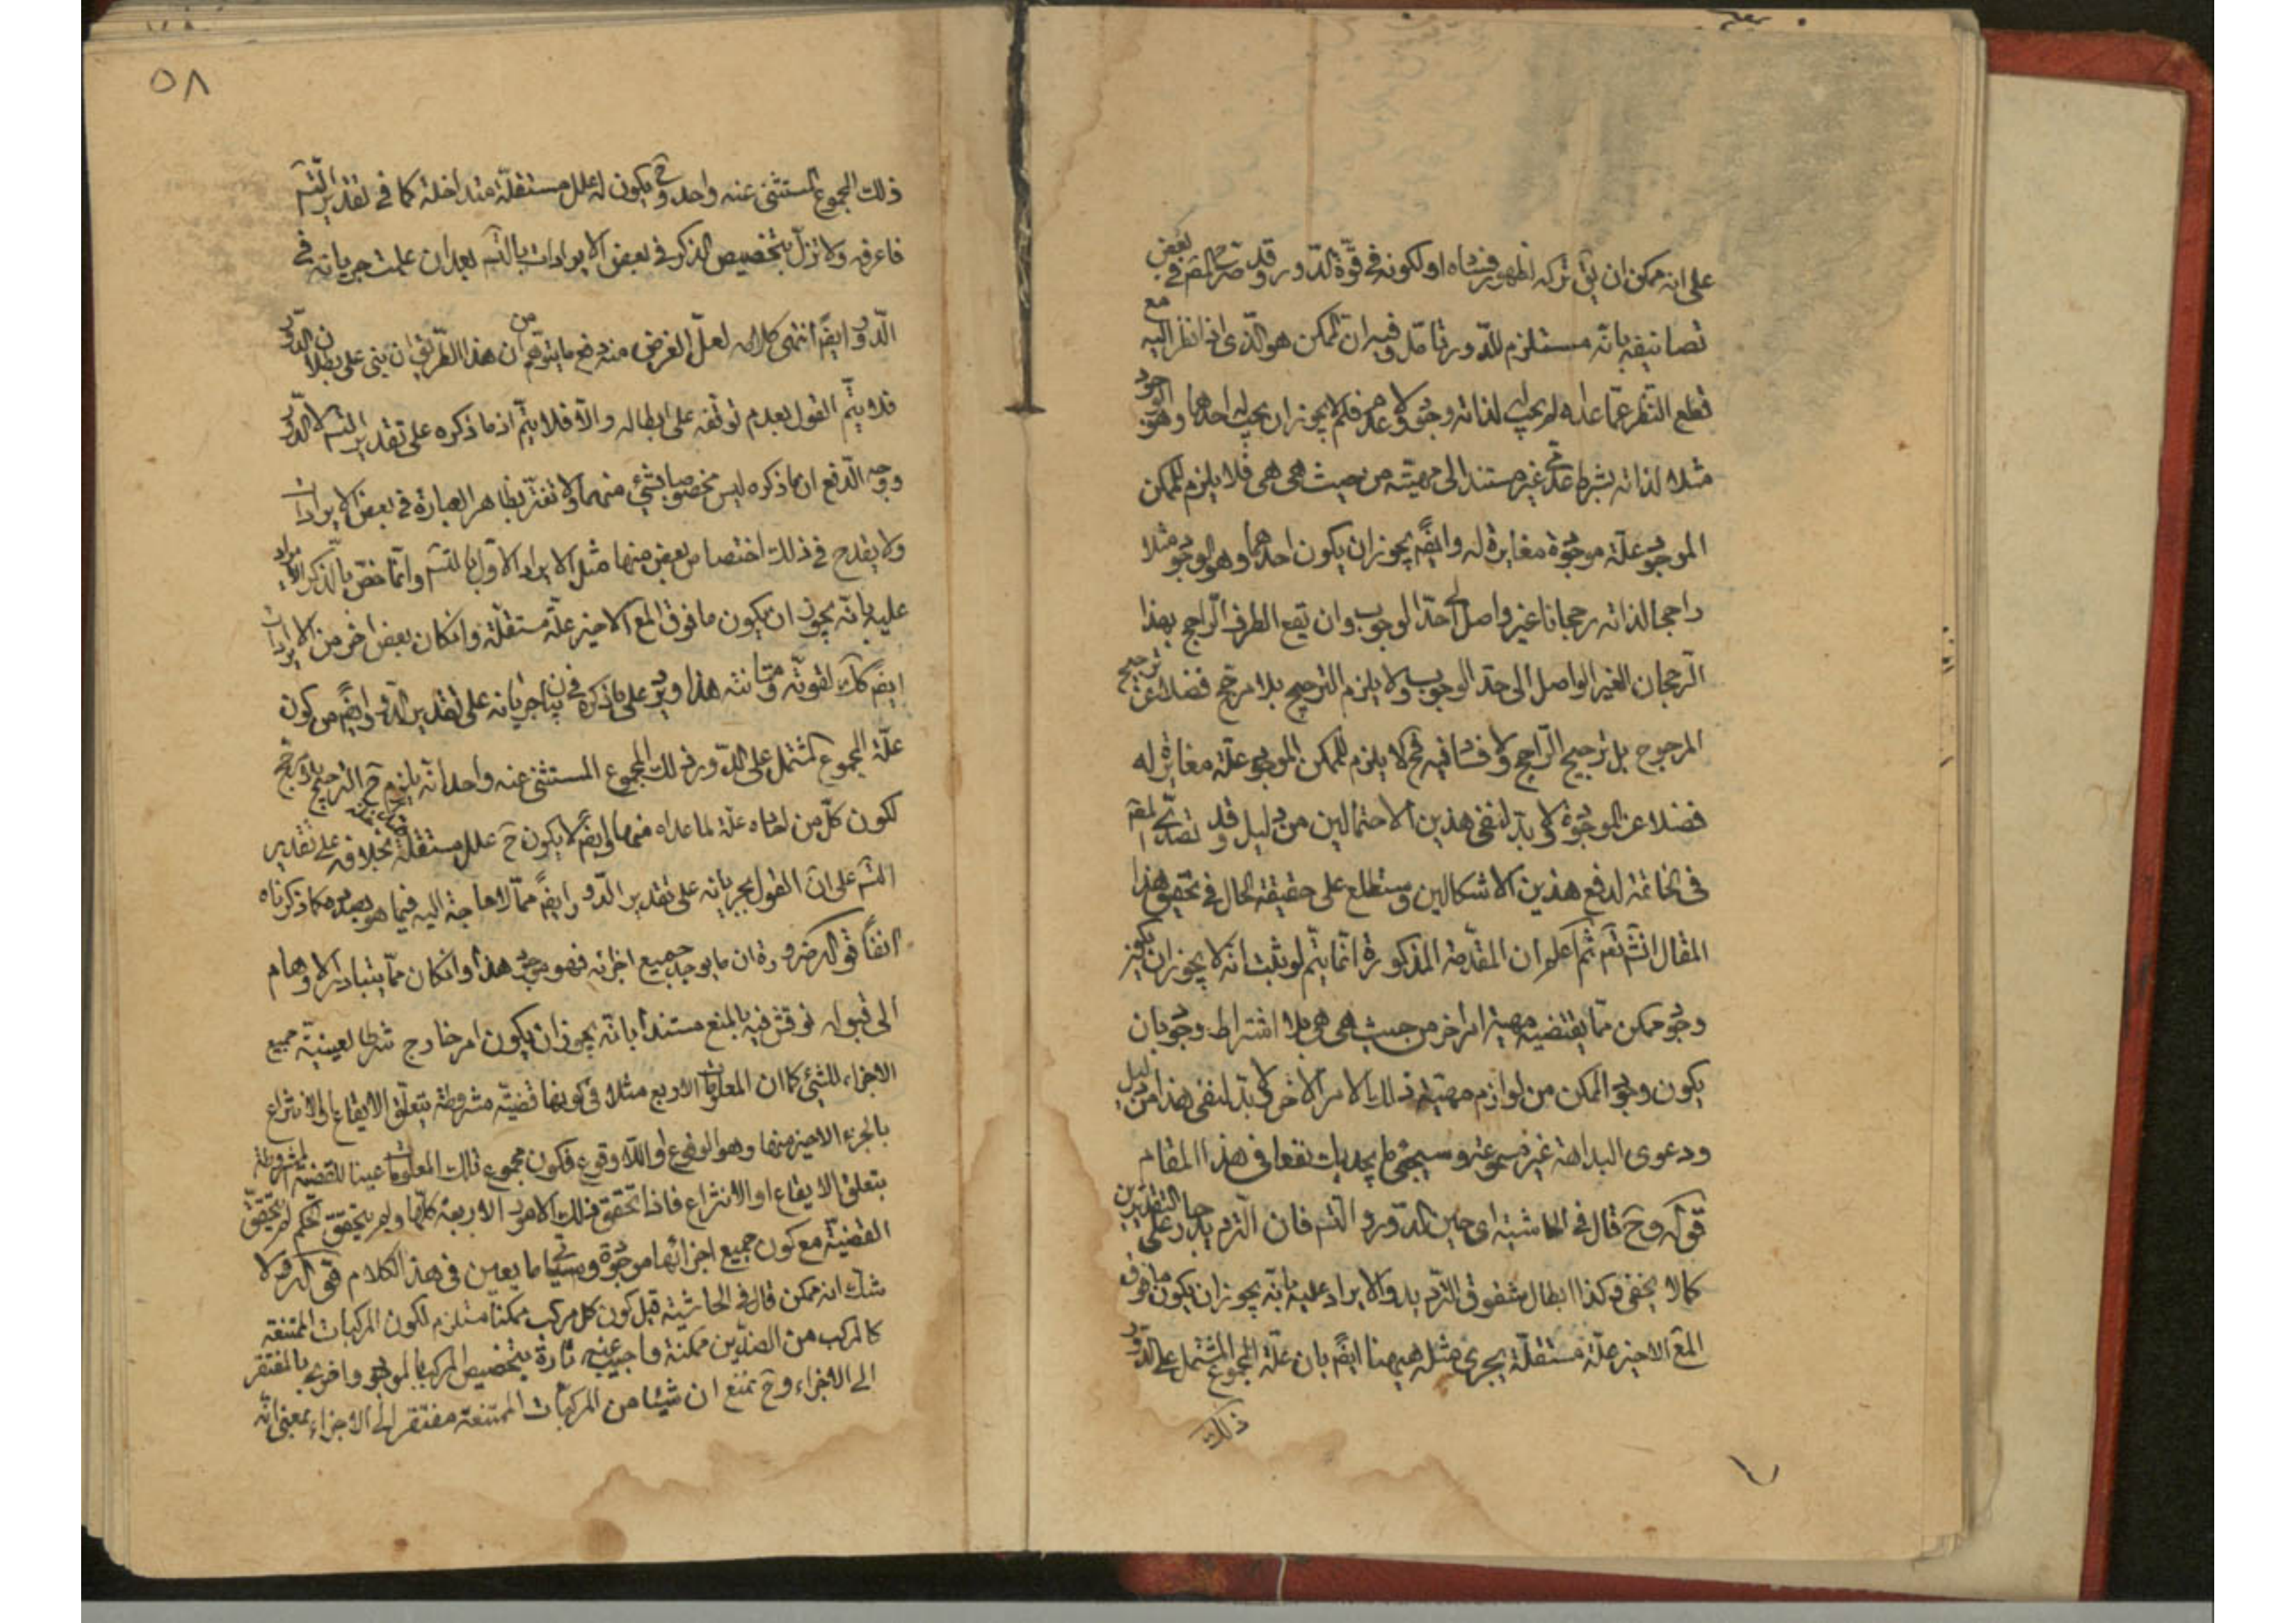 على انه يمكن ان يق تركه لظهور فساده او لكونه في قوّة الدّور وقد صرّح المص في بعض
تصانيفه بانّه مستلزم للدّور تامّل وفيه ان الممكن هو الذي اذا نظر اليه مع
قطع النّظر عمّا عداه لم يجب له لذاته وجوده ولا عدمه فلم لا يجوز ان يجب له احدهما وهو الوجود
مثلا لذاته بشرط عدمي غير مستند الى مهيّته من حيث هي هي فلا يلزم للممكن
الموجود علّة موجودة مغايرة له وايضً يجوز ان يكون احدهما وهو الوجود مثلا
راجحا لذاته رجحانا غير واصل الى حدّ الوجوب وان يقع الطرف الراجح بهذا
الرّجحان الغير الواصل الى حدّ الوجوب ولا يلزم الترجيح بلا مرجّح فضلا عن ترجيح
المرجوح بل ترجيح الرّاجح ولا فساد فيه فح لا يلزم للممكن الموجود علّة مغايرة له
فضلا عن الموجودة لا بدّ لنفي هذين الاحتمالين من دليل وقد تصدّى المص
في الخاتمة لدفع هذين الاشكالين وستطلع على حقيقة الحال في تحقيق هذا
المقال انشٓ تعٓ ثم اعلم ان المقدّمة المذكورة انّما يتّم لو ثبت انه لا يجوز ان يكون
وجود ممكن ممّا يقتضيه مهية امر اخر من حيث هي هي بلا اشتراط وجود بان
يكون وجود الممكن من لوازم مهيّة ذلك الامر الاخر لا بدّ لنفي هذا من دليل
ودعوى البداهة غير مسموعة وسيجئ ما يجديك نفعا في هذا المقام
قوله وح قال في الحاشية اى حين الدّور والتسٓ فان التّرديد على التقديرين
كما لا يخفى وكذا ابطال شقوق التّرديد والايراد عليه بانّه يجوز ان يكون ما فوق
المعٓ الاخير علّة مستقلّة يجرى مثله ههنا ايضً بان علّة المجموع المشتمل على الدّور
ذلك
٥٨
ذلك المجموع المستثنى عنه واحد وح يكون له علل مستقلّة متداخلة كما في تقدير التسٓ
فاعرفه ولا تزلّ بتخصيص الذكر في بعض الايرادات بالتسٓ بعد ان علمت جريانه في
الدّور ايضً انتهى كلامه لعلّ الغرض منه دفع ما يتوهّم من ان هذا الطّريق ان بنى على بطلان الدّور
فلا يتّم القول بعدم توقّفه على ابطاله والّا فلا يتّم اذ ما ذكره على تقدير التسٓ لا الدّور
ووجه الدّفع ان ما ذكره ليس مخصوصا بشئ منهما ولا تغترّ بظاهر العبارة في بعض الايرادات
ولا يقدح في ذلك اختصاص بعض منها مثل الايراد الاوّل بالتسٓ وانّما خصّ بالذّكر الايراد
عليه بانّه يجوز ان يكون ما فوق المعٓ الاخير علّة مستقلّة وان كان بعض اخر من الايرادات
ايضً كك لقوّته ومتانته هذا ويرد على ما ذكره في بيان جريانه على تقدير الدّور ايضً من كون
علّة المجموع المشتمل على الدّور ذلك المجموع المستثنى عنه واحد انّه يلزم ح الترجيح بلا مرجّح
لكون كلّ من احاده علّة لما عداه منها وايضً لا يكون ح علل مستقلّة متداخلة بخلافه على تقدير
التسٓ على ان القول بجريانه على تقدير الدّور ايضً ممّا لا حاجة اليه فيما هو بصدده كما ذكرناه
انفًا قوله ضرورة ان ما يوجد جميع اجزائه فهو موجود هذا وان كان ممّا يتبادر الاوهام
الى قبوله نوقش فيه بالمنع مستندا بانّه يجوز ان يكون امر خارج شرطا لعينيّة جميع
الاجزاء للشئ كما ان المعلومات الاربع مثلا في كونها قضيّة مشروطة بتعلّق الايقاع او الانتزاع
بالجزء الاخير منها وهو الوقوع او اللّاوقوع فكون مجموع تلك المعلومات عينا للقضيّة مشروطة
بتعلق الايقاع او الانتزاع فاذا تحقق تلك الامور الاربعة كلّها ولم يتحقق الحكم لم يتحقّق
القضيّة مع كون جميع اجزائها موجودة وسياتي ما يعين في هذا الكلام قوله ولا
شك انه ممكن قال في الحاشية قيل كون كل مركب ممكنا مستلزم لكون المركبات الممتنعة
كالمركب من الضدّين ممكنة واجيب عنه تارة بتخصيص المركب بالموجود واخرى بالمفتقر
الى الاجزاء وح نمنع ان شيئا من المركبات الممتنعة مفتقر الى الاجزاء بمعنى انّه